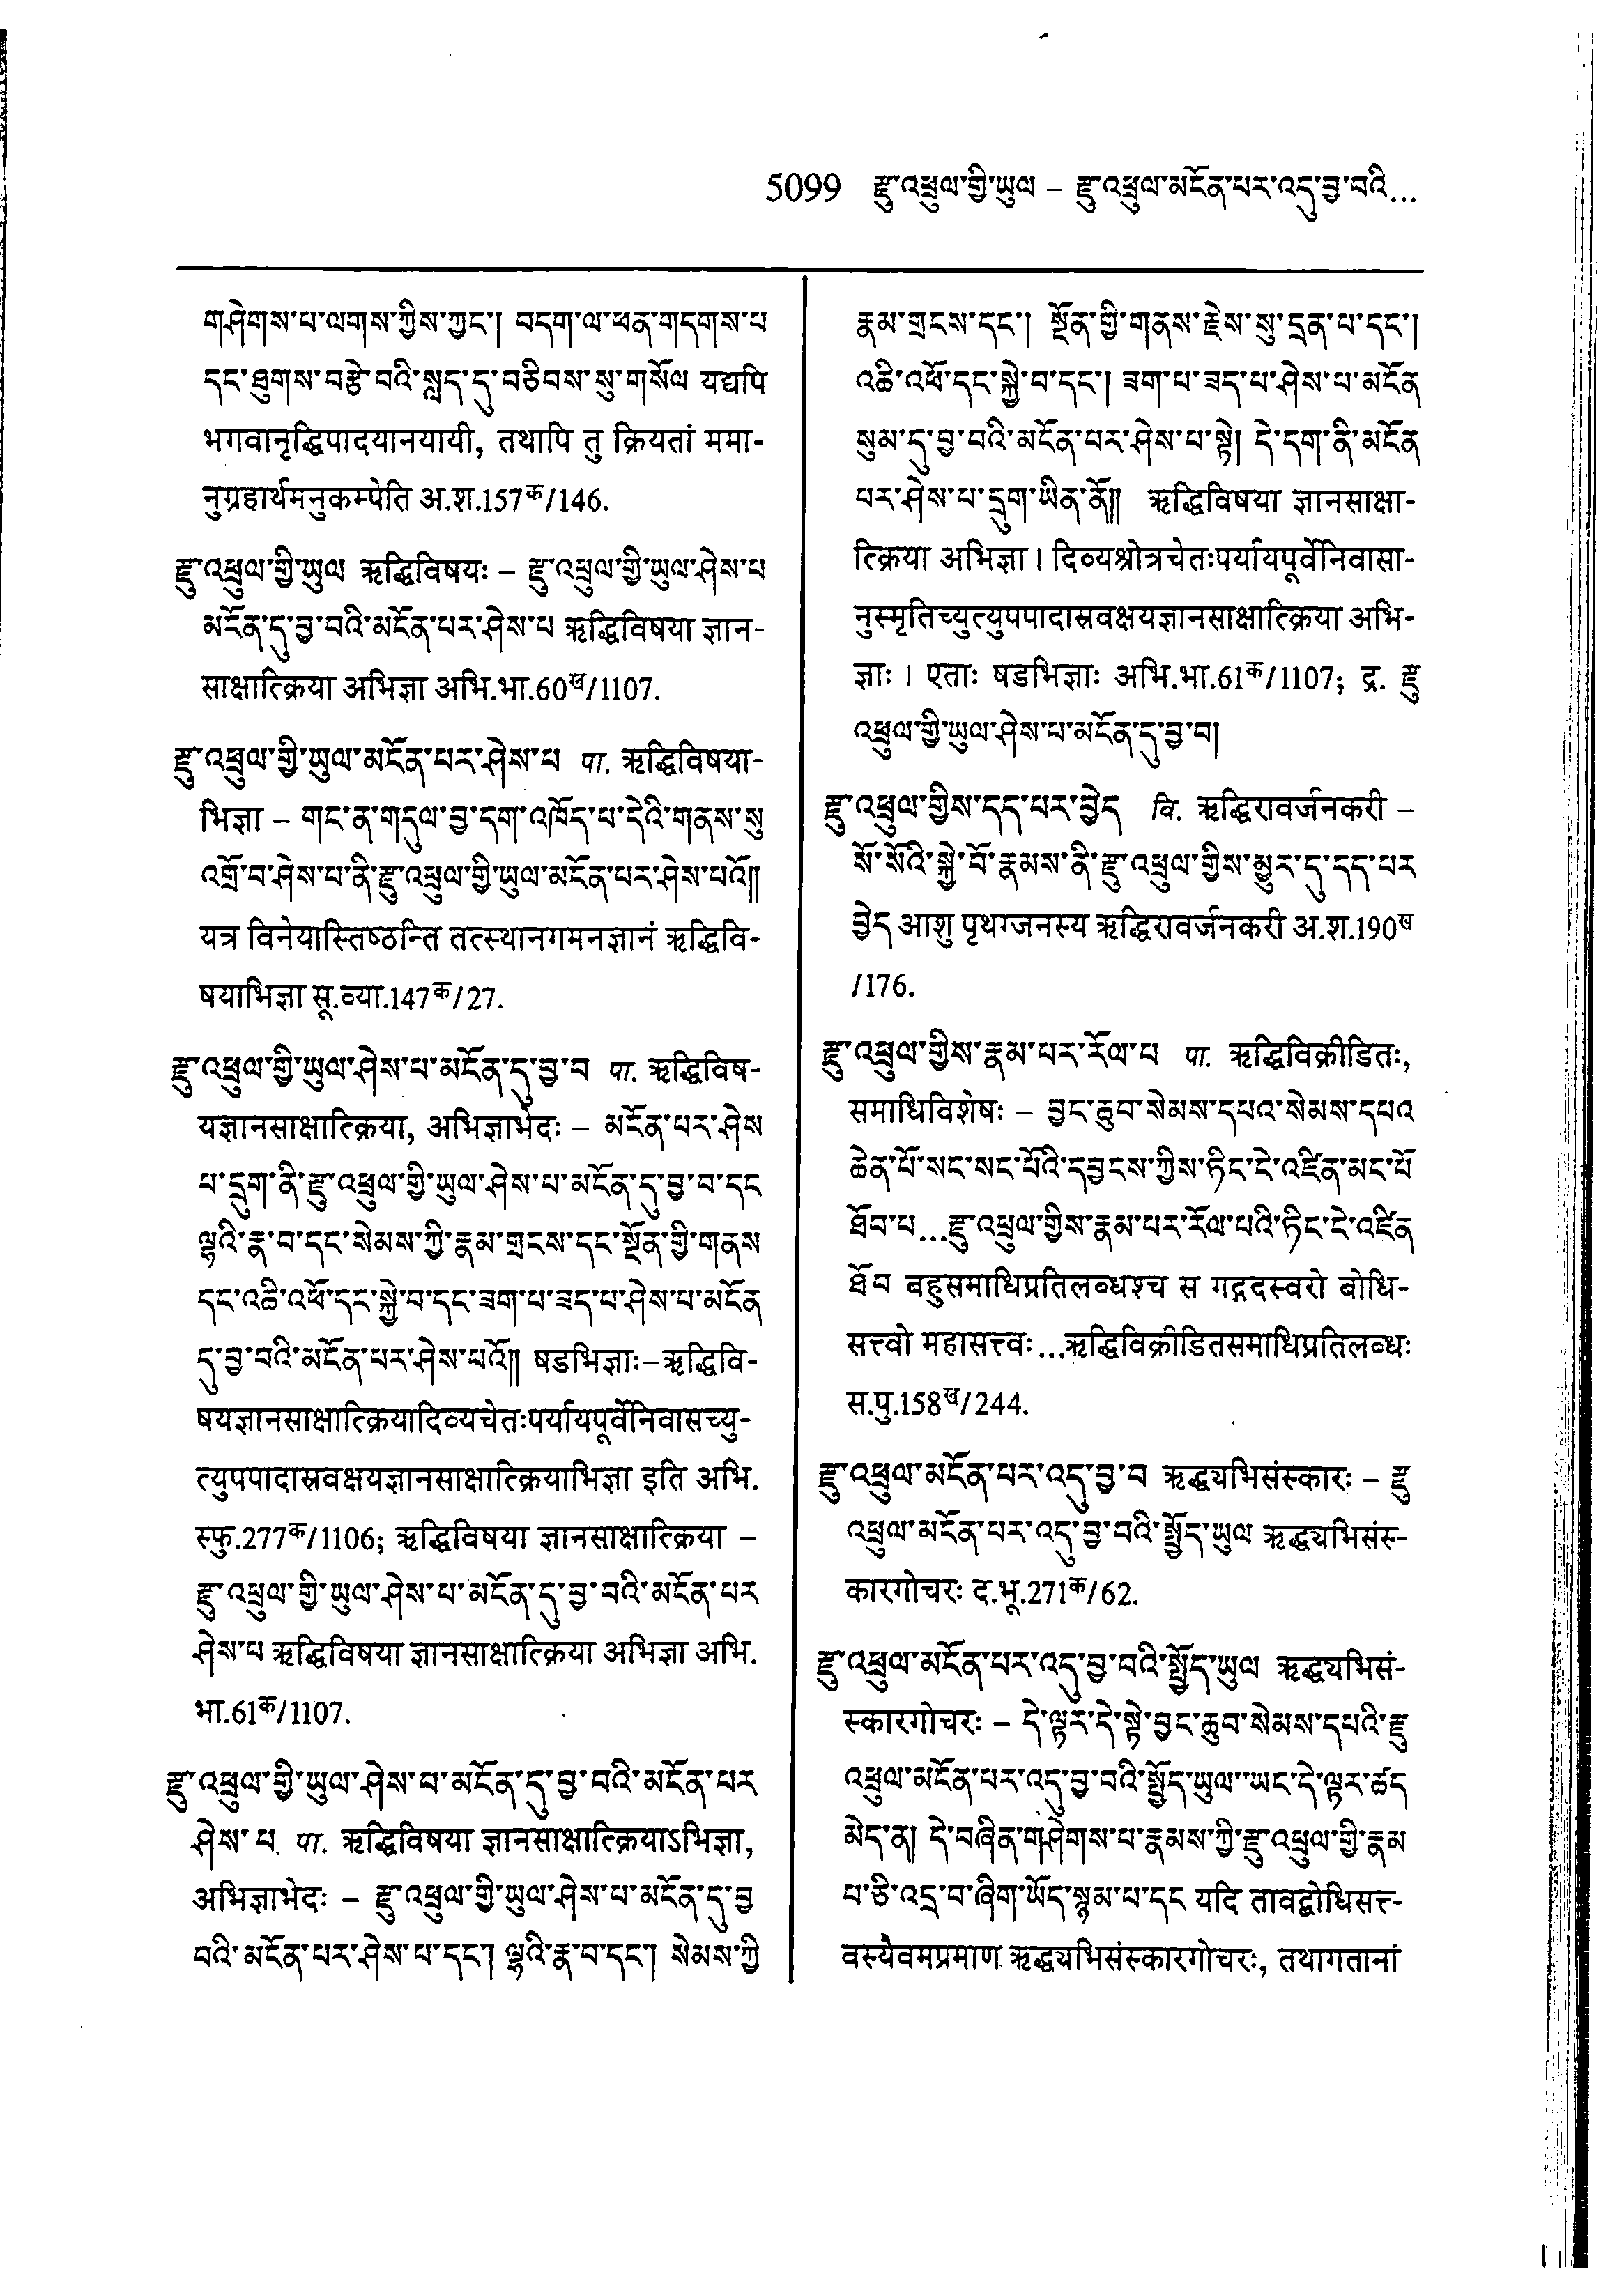 5099 རྫུ་འཕྲུལ་གྱི་ཡུལ – རྫུ་འཕྲུལ་མངོན་པར་འདུ་བྱ་བའི...
གཤེགས་པ་ལགས་ཀྱིས་ཀྱང་། བདག་ལ་ཕན་གདགས་པ
དང་ཐུགས་བརྩེ་བའི་སླད་དུ་བཅིབས་སུ་གསོལ यद्यपि
भगवानृद्धिपादयानयायी, तथापि तु क्रियतां ममा-
नुग्रहार्थमनुकम्पेति अ.श.157क/146.
རྫུ་འཕྲུལ་གྱི་ཡུལ ऋद्धिविषयः – རྫུ་འཕྲུལ་གྱི་ཡུལ་ཤེས་པ
མངོན་དུ་བྱ་བའི་མངོན་པར་ཤེས་པ ऋद्धिविषया ज्ञान-
साक्षात्क्रिया अभिज्ञा अभि.भा.60ख/1107.
རྫུ་འཕྲུལ་གྱི་ཡུལ་མངོན་པར་ཤེས་པ पा. ऋद्धिविषया-
भिज्ञा – གང་ན་གདུལ་བྱ་དག་འཁོད་པ་དེའི་གནས་སུ
འགྲོ་བ་ཤེས་པ་ནི་རྫུ་འཕྲུལ་གྱི་ཡུལ་མངོན་པར་ཤེས་པའོ༎
यत्र विनेयास्तिष्ठन्ति तत्स्थानगमनज्ञानं ऋद्धिवि-
षयाभिज्ञा सू.व्या.147क/27.
རྫུ་འཕྲུལ་གྱི་ཡུལ་ཤེས་པ་མངོན་དུ་བྱ་བ पा. ऋद्धिविष-
यज्ञानसाक्षात्क्रिया, अभिज्ञाभेदः – མངོན་པར་ཤེས
པ་དྲུག་ནི་རྫུ་འཕྲུལ་གྱི་ཡུལ་ཤེས་པ་མངོན་དུ་བྱ་བ་དང
ལྷའི་རྣ་བ་དང་སེམས་ཀྱི་རྣམ་གྲངས་དང་སྔོན་གྱི་གནས
དང་འཆི་འཕོ་དང་སྐྱེ་བ་དང་ཟག་པ་ཟད་པ་ཤེས་པ་མངོན
དུ་བྱ་བའི་མངོན་པར་ཤེས་པའོ༎ षडभिज्ञाः–ऋद्धिवि-
षयज्ञानसाक्षात्क्रियादिव्यचेतःपर्यायपूर्वेनिवासच्यु-
त्युपपादास्रवक्षयज्ञानसाक्षात्क्रियाभिज्ञा इति अभि.
स्फु.277क/1106; ऋद्धिविषया ज्ञानसाक्षात्क्रिया –
རྫུ་འཕྲུལ་གྱི་ཡུལ་ཤེས་པ་མངོན་དུ་བྱ་བའི་མངོན་པར
ཤེས་པ ऋद्धिविषया ज्ञानसाक्षात्क्रिया अभिज्ञा अभि.
भा.61क/1107.
རྫུ་འཕྲུལ་གྱི་ཡུལ་ཤེས་པ་མངོན་དུ་བྱ་བའི་མངོན་པར
ཤེས་པ पा. ऋद्धिविषया ज्ञानसाक्षात्क्रियाऽभिज्ञा,
अभिज्ञाभेदः – རྫུ་འཕྲུལ་གྱི་ཡུལ་ཤེས་པ་མངོན་དུ་བྱ
བའི་མངོན་པར་ཤེས་པ་དང་། ལྷའི་རྣ་བ་དང་། སེམས་ཀྱི
རྣམ་གྲངས་དང་། སྔོན་གྱི་གནས་རྗེས་སུ་དྲན་པ་དང་།
འཆི་འཕོ་དང་སྐྱེ་བ་དང་། ཟག་པ་ཟད་པ་ཤེས་པ་མངོན
སུམ་དུ་བྱ་བའི་མངོན་པར་ཤེས་པ་སྟེ། དེ་དག་ནི་མངོན
པར་ཤེས་པ་དྲུག་ཡིན་ནོ༎ ऋद्धिविषया ज्ञानसाक्षा-
त्क्रिया अभिज्ञा । दिव्यश्रोत्रचेतःपर्यायपूर्वेनिवासा-
नुस्मृतिच्युत्युपपादास्रवक्षयज्ञानसाक्षात्क्रिया अभि-
ज्ञाः । एताः षडभिज्ञाः अभि.भा.61क/1107; द्र. རྫུ
འཕྲུལ་གྱི་ཡུལ་ཤེས་པ་མངོན་དུ་བྱ་བ།
རྫུ་འཕྲུལ་གྱིས་དད་པར་བྱེད वि. ऋद्धिरावर्जनकरी –
སོ་སོའི་སྐྱེ་བོ་རྣམས་ནི་རྫུ་འཕྲུལ་གྱིས་མྱུར་དུ་དད་པར
བྱེད आशु पृथग्जनस्य ऋद्धिरावर्जनकरी अ.श.190ख
/176.
རྫུ་འཕྲུལ་གྱིས་རྣམ་པར་རོལ་པ पा. ऋद्धिविक्रीडितः,
समाधिविशेषः – བྱང་ཆུབ་སེམས་དཔའ་སེམས་དཔའ
ཆེན་པོ་སང་སང་པོའི་དབྱངས་ཀྱིས་ཏིང་ངེ་འཛིན་མང་པོ
ཐོབ་པ...རྫུ་འཕྲུལ་གྱིས་རྣམ་པར་རོལ་པའི་ཏིང་ངེ་འཛིན
ཐོབ बहुसमाधिप्रतिलब्धश्च स गद्गदस्वरो बोधि-
सत्त्वो महासत्त्वः...ऋद्धिविक्रीडितसमाधिप्रतिलब्धः
स.पु.158ख/244.
རྫུ་འཕྲུལ་མངོན་པར་འདུ་བྱ་བ ऋद्ध्यभिसंस्कारः – རྫུ
འཕྲུལ་མངོན་པར་འདུ་བྱ་བའི་སྤྱོད་ཡུལ ऋद्ध्यभिसंस्-
कारगोचरः द.भू.271क/62.
རྫུ་འཕྲུལ་མངོན་པར་འདུ་བྱ་བའི་སྤྱོད་ཡུལ ऋद्ध्यभिसं-
स्कारगोचरः – དེ་ལྟར་དེ་སྟེ་བྱང་ཆུབ་སེམས་དཔའི་རྫུ
འཕྲུལ་མངོན་པར་འདུ་བྱ་བའི་སྤྱོད་ཡུལ་ཡང་དེ་ལྟར་ཚད
མེད་ན། དེ་བཞིན་གཤེགས་པ་རྣམས་ཀྱི་རྫུ་འཕྲུལ་གྱི་རྣམ
པ་ཅི་འདྲ་བ་ཞིག་ཡོད་སྙམ་པ་དང यदि तावद्बोधिसत्त्-
वस्यैवमप्रमाण ऋद्ध्यभिसंस्कारगोचरः, तथागतानां